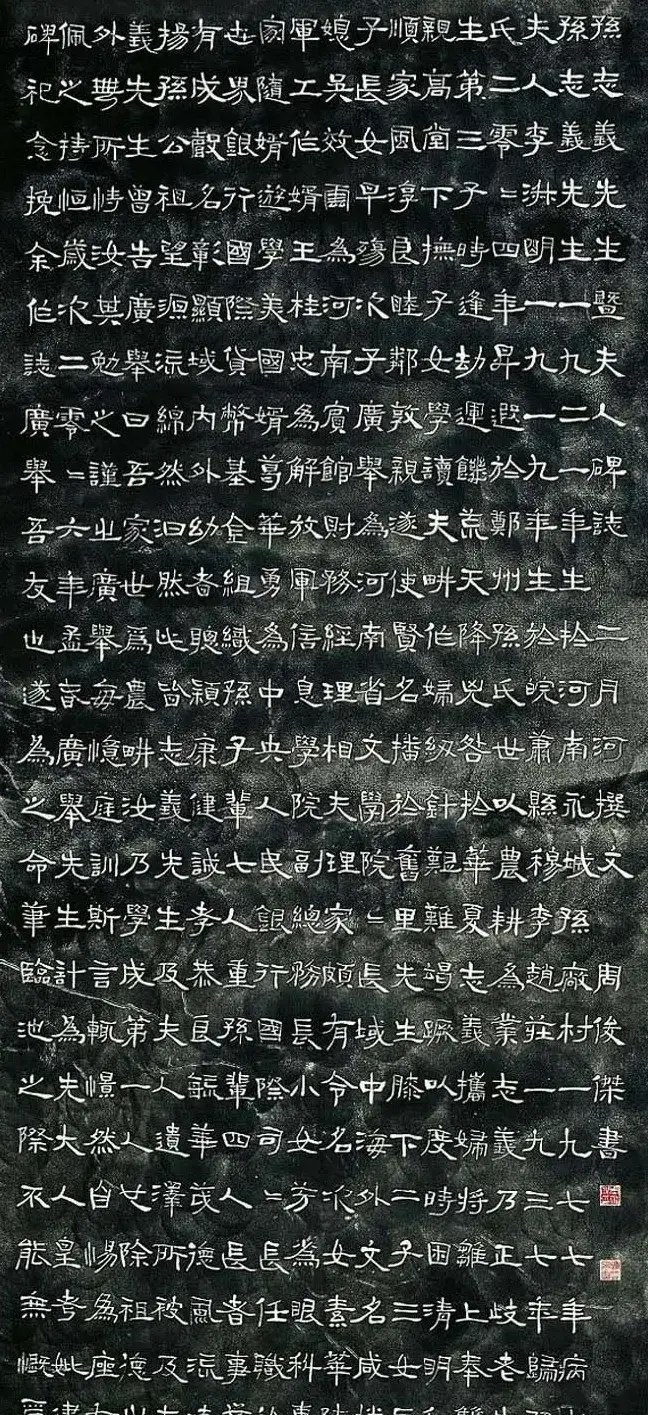 孫志義先生暨夫人碑誌 二月河 撰文 周俊傑書
孫志義先生一九二一年生於河南永城孫廠村一九七七年病
夫人李淋明一九一九年生於皖蕭縣穆李趙莊一九三七年歸
氏二零二四年昇遐於鄭州孫氏世以農耕為業志義乃正歧老
生第三子時逢劫運饑荒天降兇咎於華夏志義攜婦將雛上奉
親高堂下撫子女學讀夫畊作婦紉針艱難竭蹶以度時困清明
順家風淳良睦鄰敦親遂使賢名播於舊里先生膝下二子三女
子長女早殤次子廣舉為河南省文學院二長域中海外文名咸
媳吳效爾為河南賓館財務經理相夫理家頗有令名次女素華
軍工作婿王桂忠為解放軍信息學院副總務長小女芬為眼科
家隨婿遊學美國婿萼華勇為中央人民銀行國際司二長任職
世界銀行國際貨幣基金組織孫子輩七人重孫輩四人長者事
有成彀名彰顯域內外幼者聰穎康健誠孝恭良毓華茂德風流
揚孫公祖望源流綿然汩然此皆志義先生及夫人遺澤所被及
義先生曾告廣舉曰吾家世爲農畊汝乃學成第一人也除祖德
外無所恃汝其勉之謹也廣舉每憶庭訓斯言輒憬然自惕為座
佩之持恒歲次二零二六年孟春廣舉先生計為先大人皇考妣
碑祀念挽余作誌廣舉吾友也遂為之命筆臨池之際不能無慨